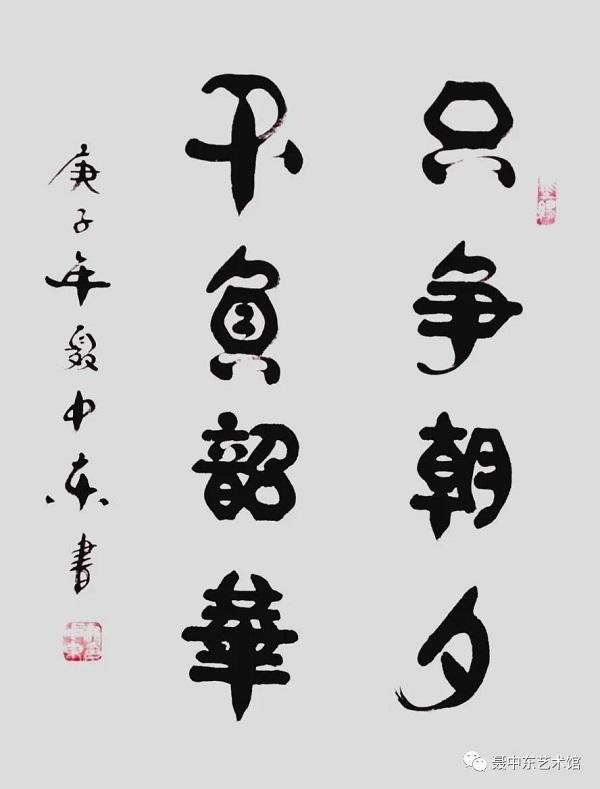 只争朝夕
不負韶華
庚子年聂中东書
聂中东艺术馆